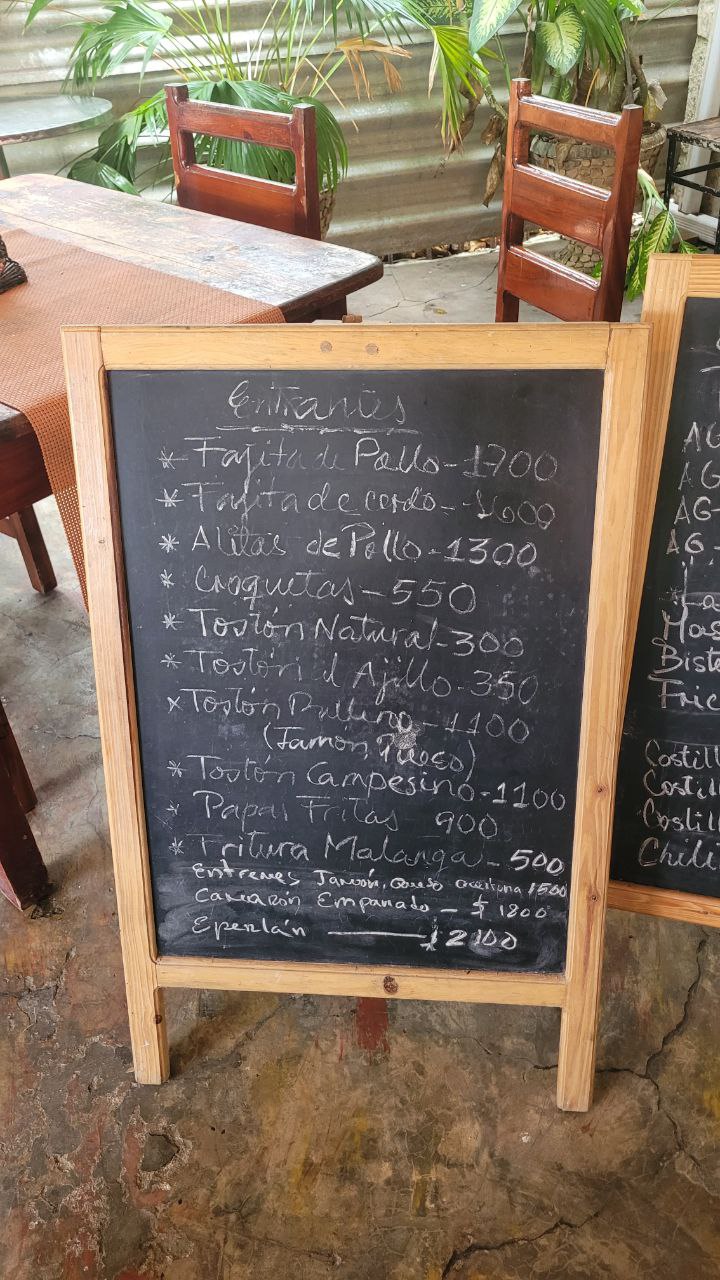 Entrantes
* Fajita de Pollo - 1700
* Fajita de cerdo - 1600
* Alitas de Pollo - 1300
* Croquetas - 550
* Tostón Natural - 300
* Tostón al Ajillo - 350
* Tostón Relleno - 1100
(Jamón, Queso)
* Tostón Campesino - 1100
* Papas Fritas 900
* Fritura Malanga - 500
Entremes Jamón, queso aceituna 1500
Camarón Empanado - $ 1800
Eperlán — $ 2100
AG
AG
AG-
AG-
Bist
Costill
Costill
Costill
Chili